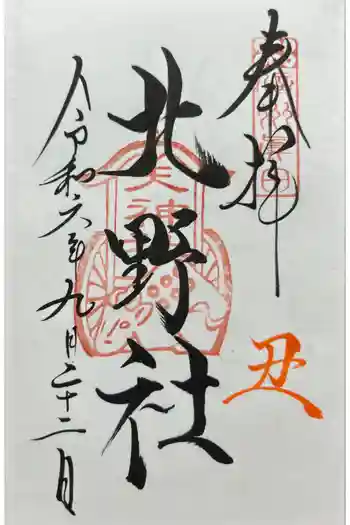 奉拝
丑
北野社
令和六年九月二十二日
天神